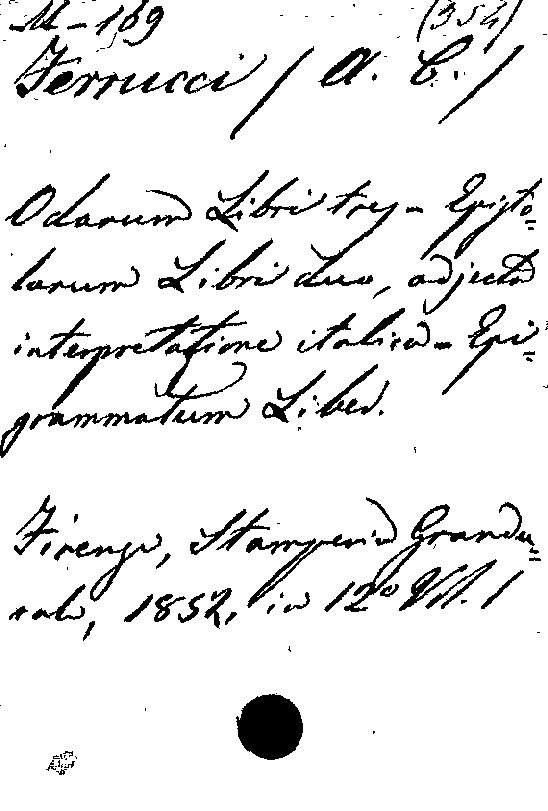 M-169 (354)
Ferrucci / A. C. /
Odarum Libri tres - Episto=
larum Libri duo, adjecta
interpretatione italica - Epi=
grammatum Liber.
Firenze, Stamperia Grandu=
cale, 1852, in 12° Vol. 1